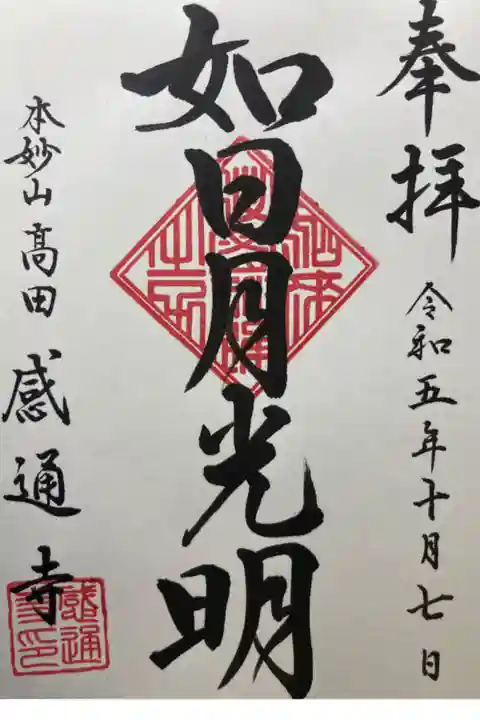 奉拝
令和五年十月七日
如日月光明
本妙山 髙田 感通寺
感通寺印